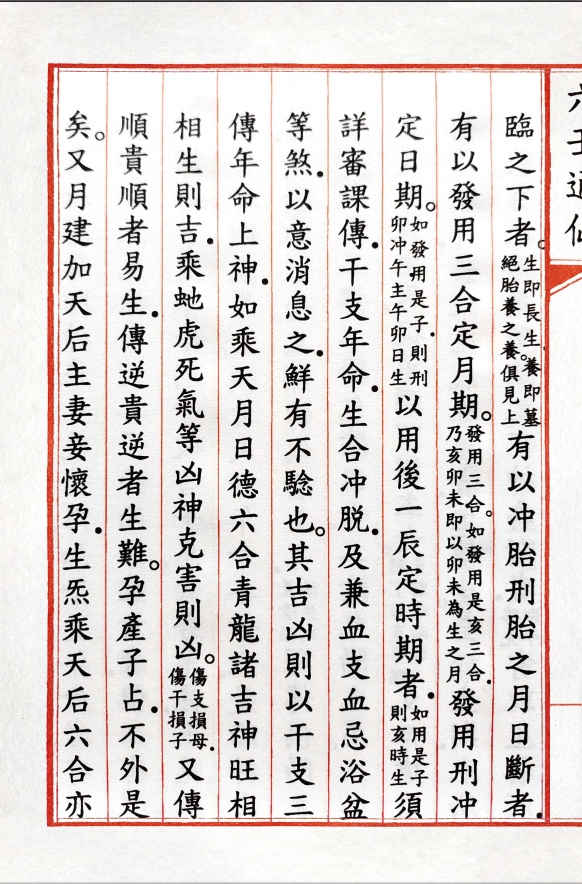 臨之下者。生即長生.養即墓絕胎養之養。俱見上有以冲胎刑胎之月日斷者.
有以發用三合定月期。發用三合。如發用是亥三合.乃亥卯未即以卯未為生之月發用刑冲
定日期。如發用是子.則刑卯冲午主午卯日生以用後一辰定時期者.如用是子則亥時生須
詳審課傳.干支年命.生合冲脱.及兼血支血忌浴盆
等煞.以意消息之.鮮有不騐也。其吉凶則以干支三
傳年命上神.如乘天月日德六合青龍諸吉神旺相
相生則吉.乘虵虎死氣等凶神克害則凶。傷支損母.傷干損子又傳
順貴順者易生.傳逆貴逆者生難。孕產子占.不外是
矣。又月建加天后主妻妾懷孕.生炁乘天后六合亦